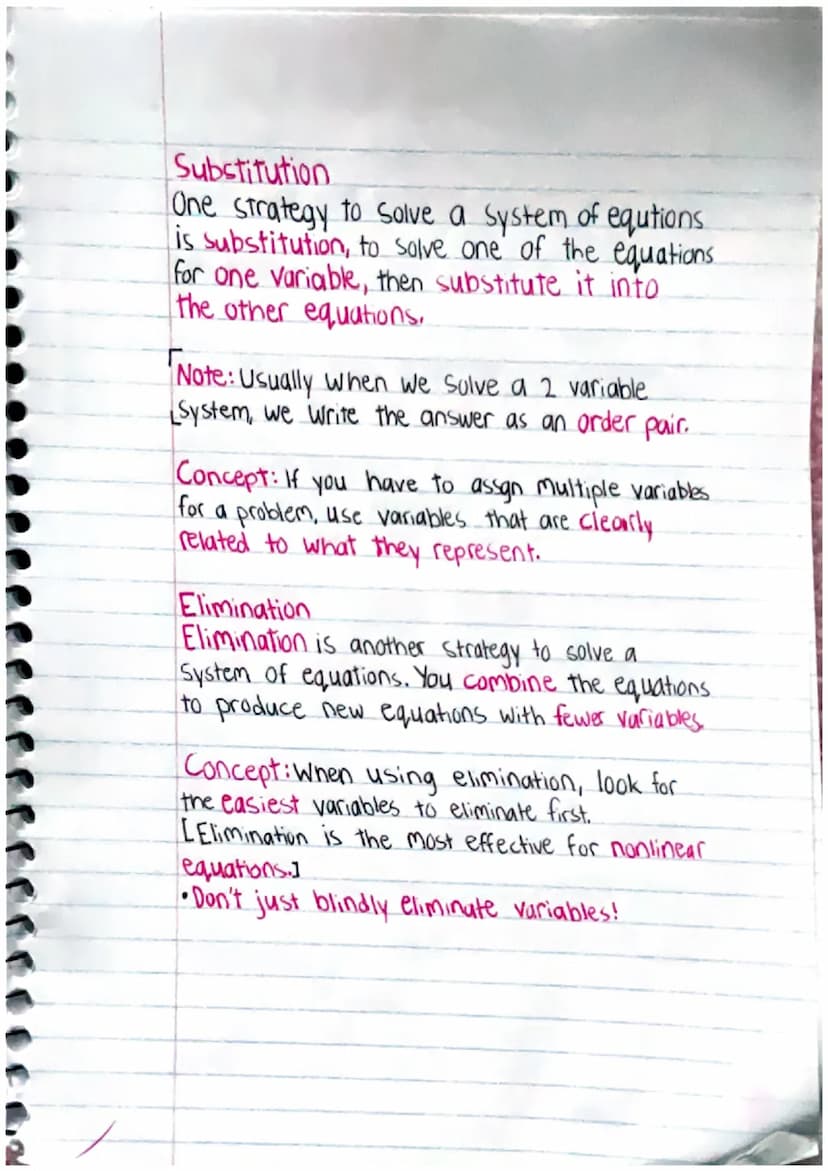 Substitution
One strategy to solve a system of equtions
is substitution, to solve one of the equations
for one variable, then substitute it into
the other equations.
Note: Usually when we solve a 2 variable
system, we write the answer as an order pair.
Concept: If you have to assgn multiple variables
for a problem, use variables that are clearly
related to what they represent.
Elimination
Elimination is another strategy to solve a
system of equations. You combine the equations
to produce new equations with fewer variables
Concept: When using elimination, look for
the easiest variables to eliminate first.
[Elimination is the most effective for nonlinear
equations.]
•Don't just blindly eliminate variables!